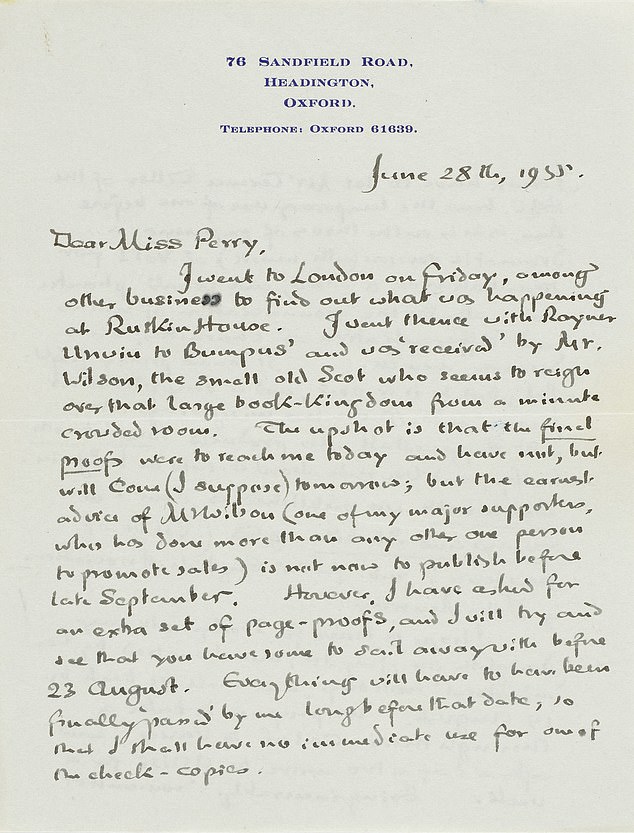 76 SANDFIELD ROAD,
HEADINGTON,
OXFORD.
TELEPHONE: OXFORD 61639.
June 28th, 1955.
Dear Miss Perry,
I went to London on Friday, among
other business to find out what was happening
at Ruskin House. I went thence with Rayner
Unwin to Bumpus' and was 'received' by Mr.
Wilson, the small old Scot who seems to reign
over that large book-kingdom from a minute
crowded room. The upshot is that the final
proofs were to reach me today and have not, but
will come (I suppose) tomorrow; but the earnest
advice of Mr Wilson (one of my major supporters,
who has done more than any other one person
to promote sales) is not now to publish before
late September. However, I have asked for
an extra set of page-proofs, and I will try and
see that you have some to sail away with before
23 August. Everything will have to have been
finally 'passed' by me long before that date, so
that I shall have no immediate use for one of
the check-copies.